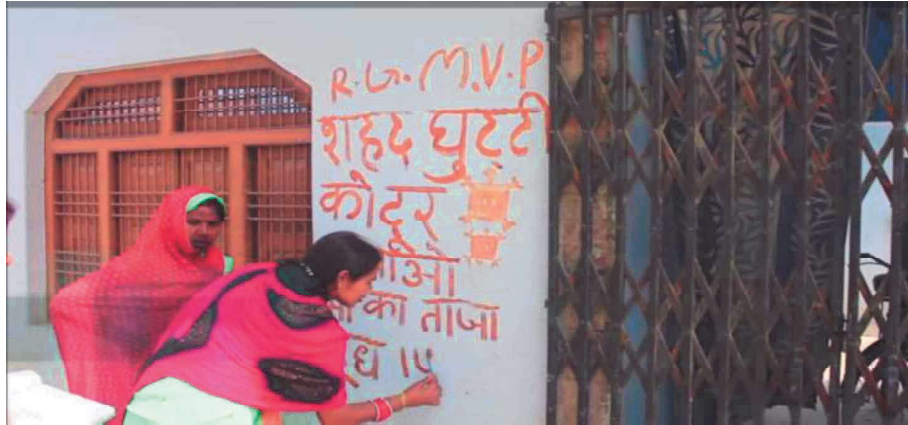 R.G.M.V.P
शहद घुट्टी
को दूर
का ताजा